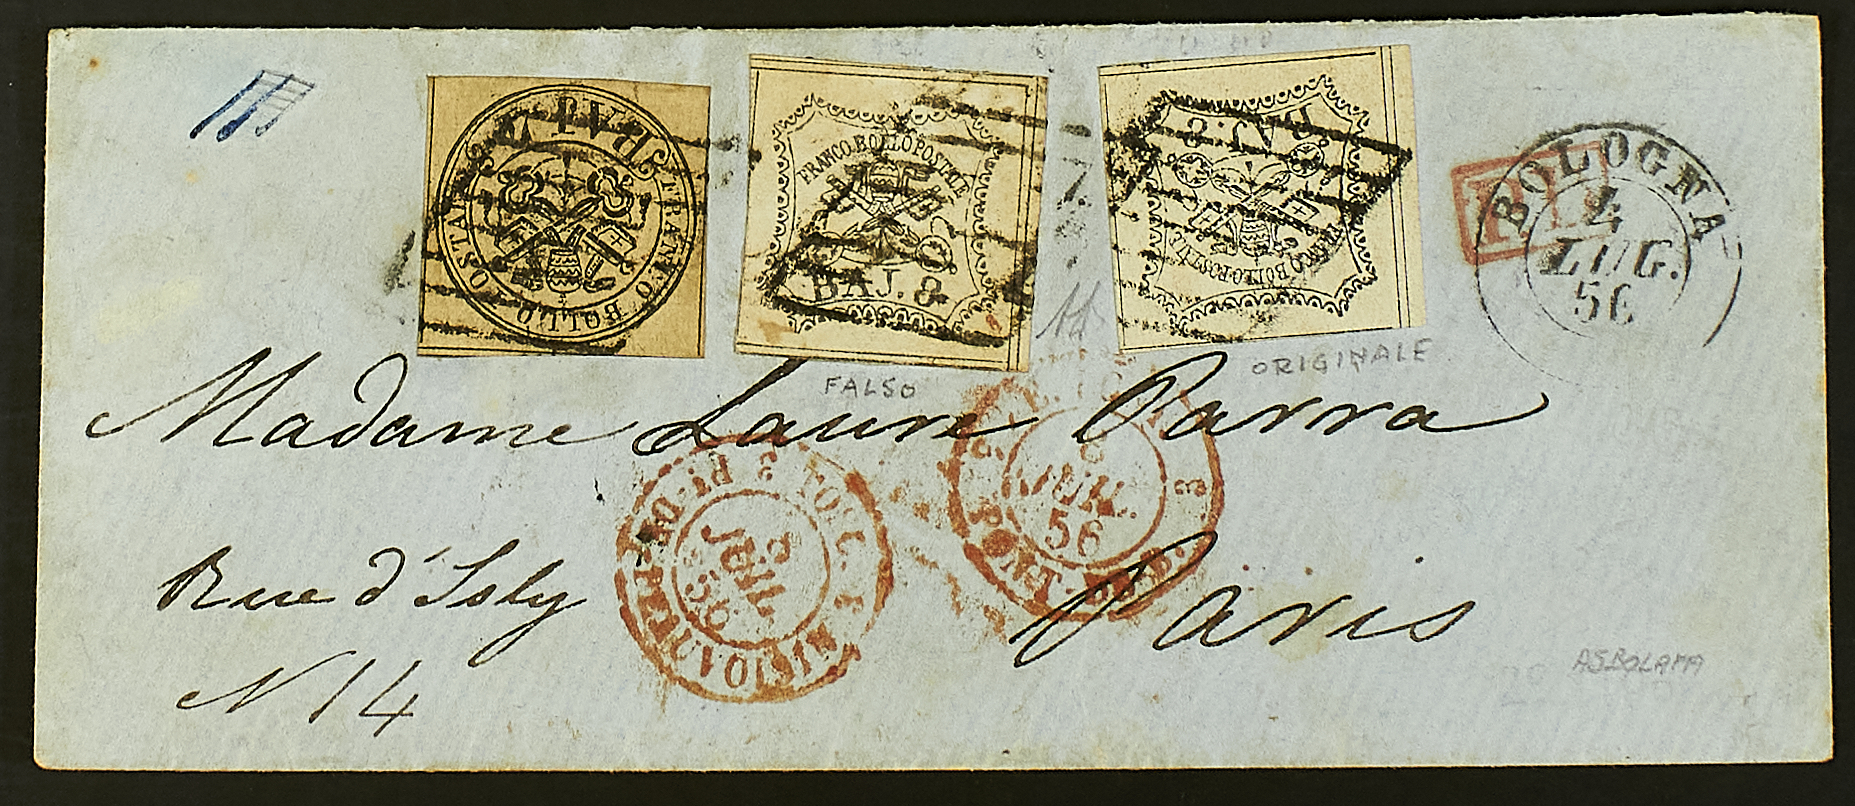 FRANCO BOLLO POSTALE
BAJ. 8
BAJ. 8
FRANCO BOLLO POSTALE
BOLOGNA
4
LUG.
56
FALSO
ORIGINALE
Madame Laure Parra
8
JUIL.
56
8
JUIL.
56
Rue d'Isly
Paris
N 14